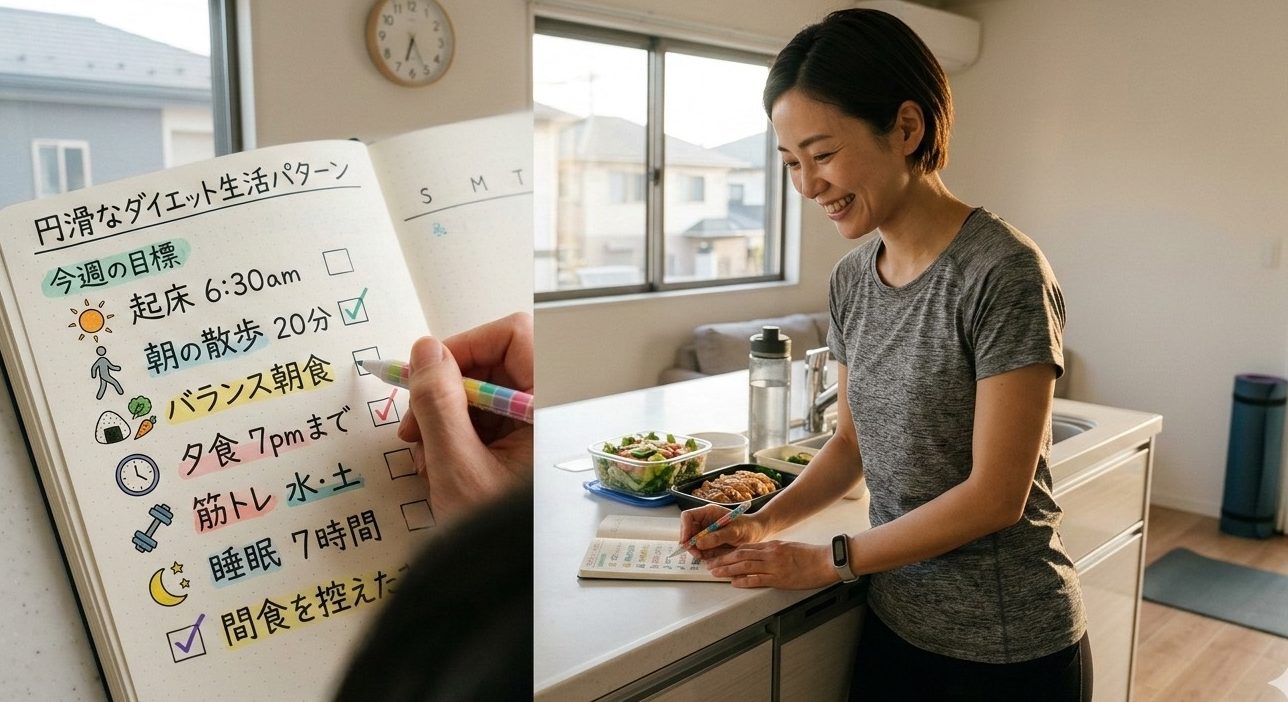 円滑なダイエット生活パターン
今週の目標
起床 6:30am
朝の散歩 20分
バランス朝食
夕食 7pmまで
筋トレ 水・土
睡眠 7時間
間食を控えた
S M T
12
1
2
3
4
5
6
7
8
9
10
11